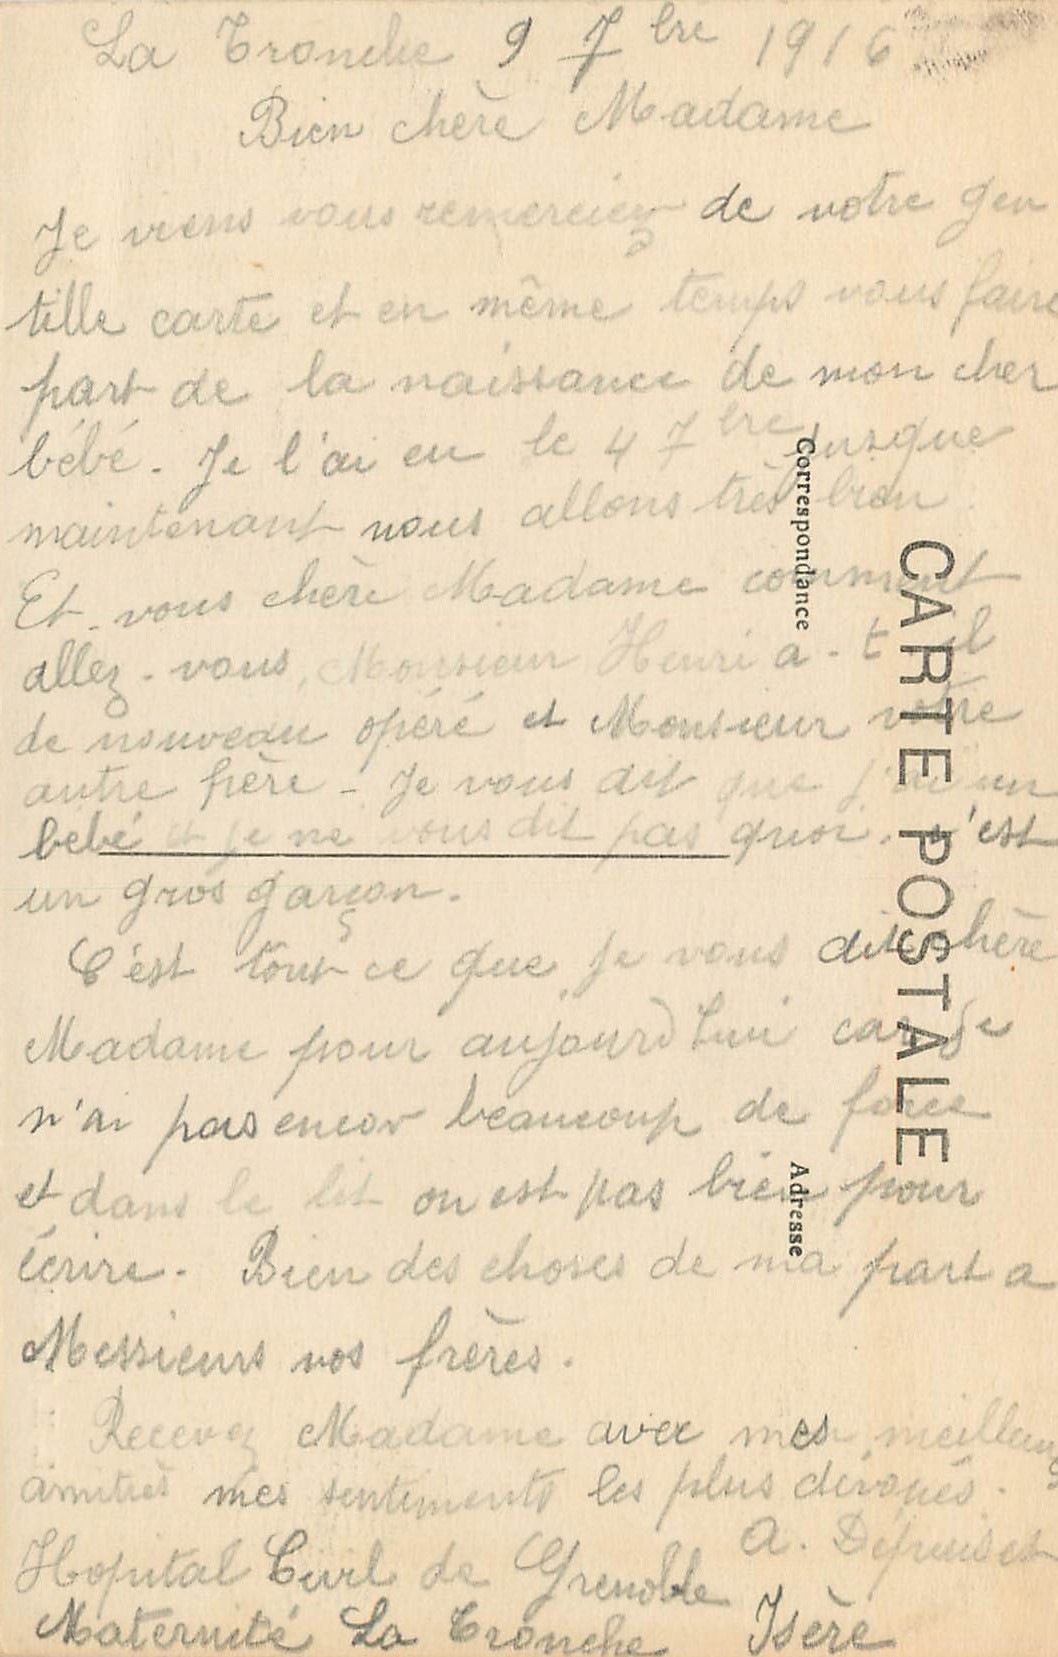 La Tronche 9 7bre 1916
Bien chère Madame
Je viens vous remerciez de votre gen
tille carte et en même temps vous faire
part de la naissance de mon cher
bébé. Je l'ai eu le 4 7bre jusque
maintenant nous allons très bien
Et vous chère Madame comment
allez-vous, Monsieur Henri a-t-il
de nouveau opéré et Monsieur votre
autre frère - Je vous dit que j'ai un
bébé et je ne vous dit pas quoi. c'est
un gros garçon.
C'est tout ce que je vous dit chère
Madame pour aujourd'hui car je
n'ai pas encor beaucoup de force
et dans le lit on est pas bien pour
écrire. Bien des choses de ma part a
Messieurs vos frères.
Recevez Madame avec mes meilleurs
amitiés mes sentiments les plus dévoués.
A.
Hopital Civil de Grenoble
Maternité La Tronche Isère
Correspondance
CARTE POSTALE
Adresse